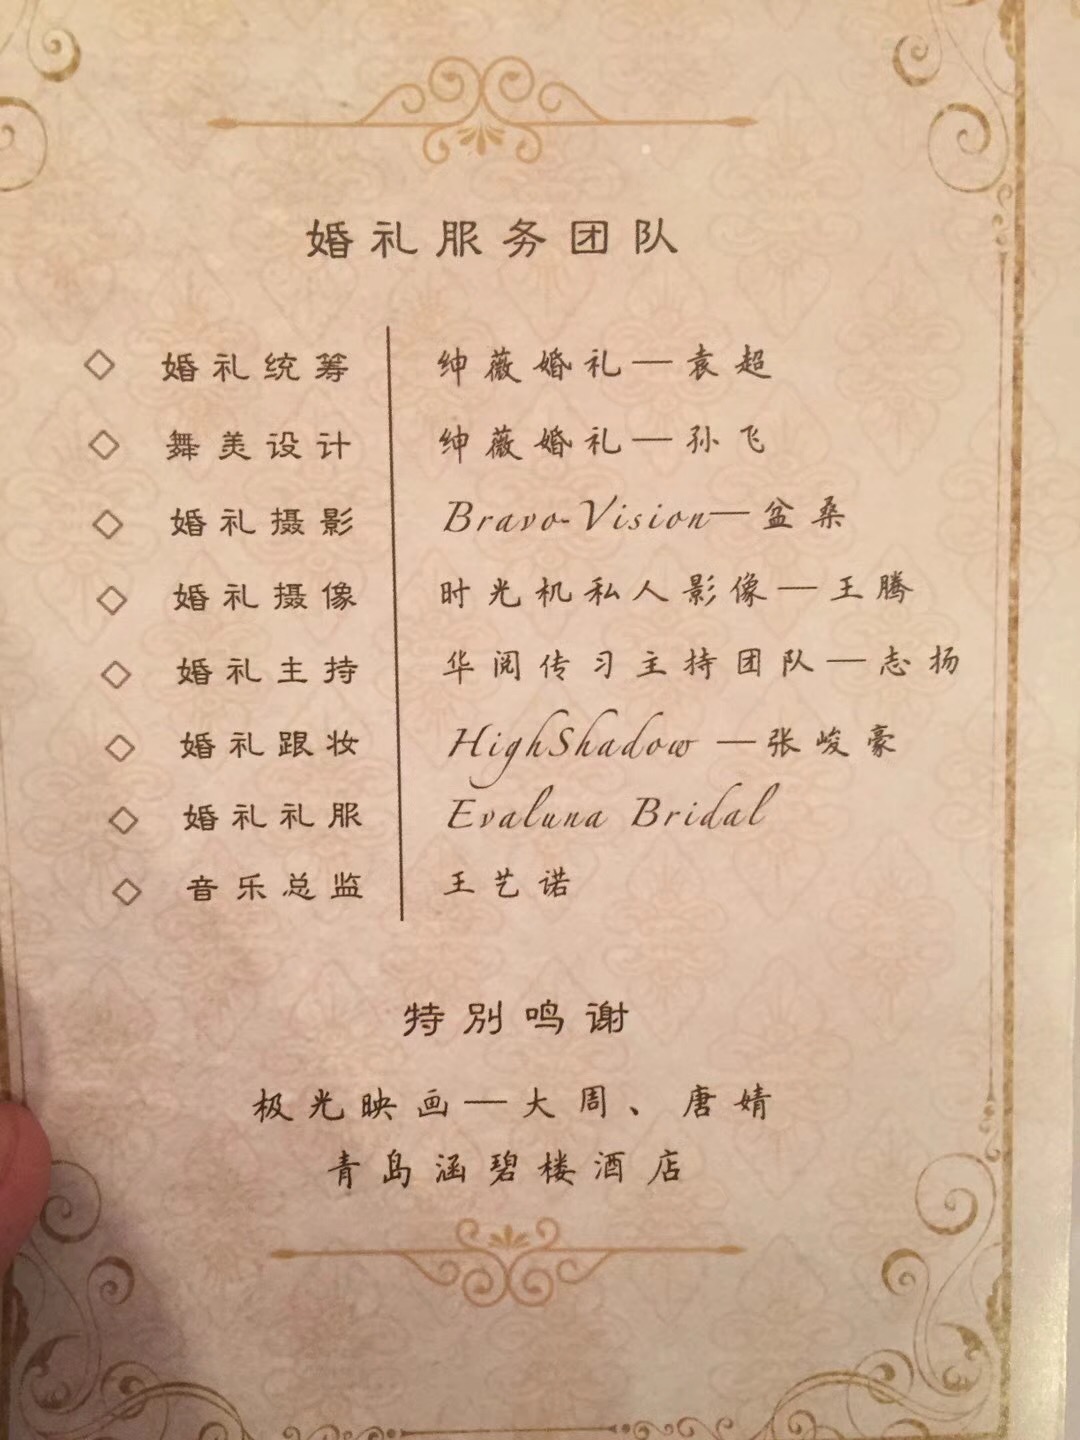 婚礼服务团队
◇ 婚礼统筹 绅薇婚礼—袁超
◇ 舞美设计 绅薇婚礼—孙飞
◇ 婚礼摄影 Bravo-Vision—盆桑
◇ 婚礼摄像 时光机私人影像—王腾
◇ 婚礼主持 华阅传习主持团队—志扬
◇ 婚礼跟妆 HighShadow —张峻豪
◇ 婚礼礼服 Evaluna Bridal
◇ 音乐总监 王艺诺
特别鸣谢
极光映画—大周、唐婧
青岛涵碧楼酒店